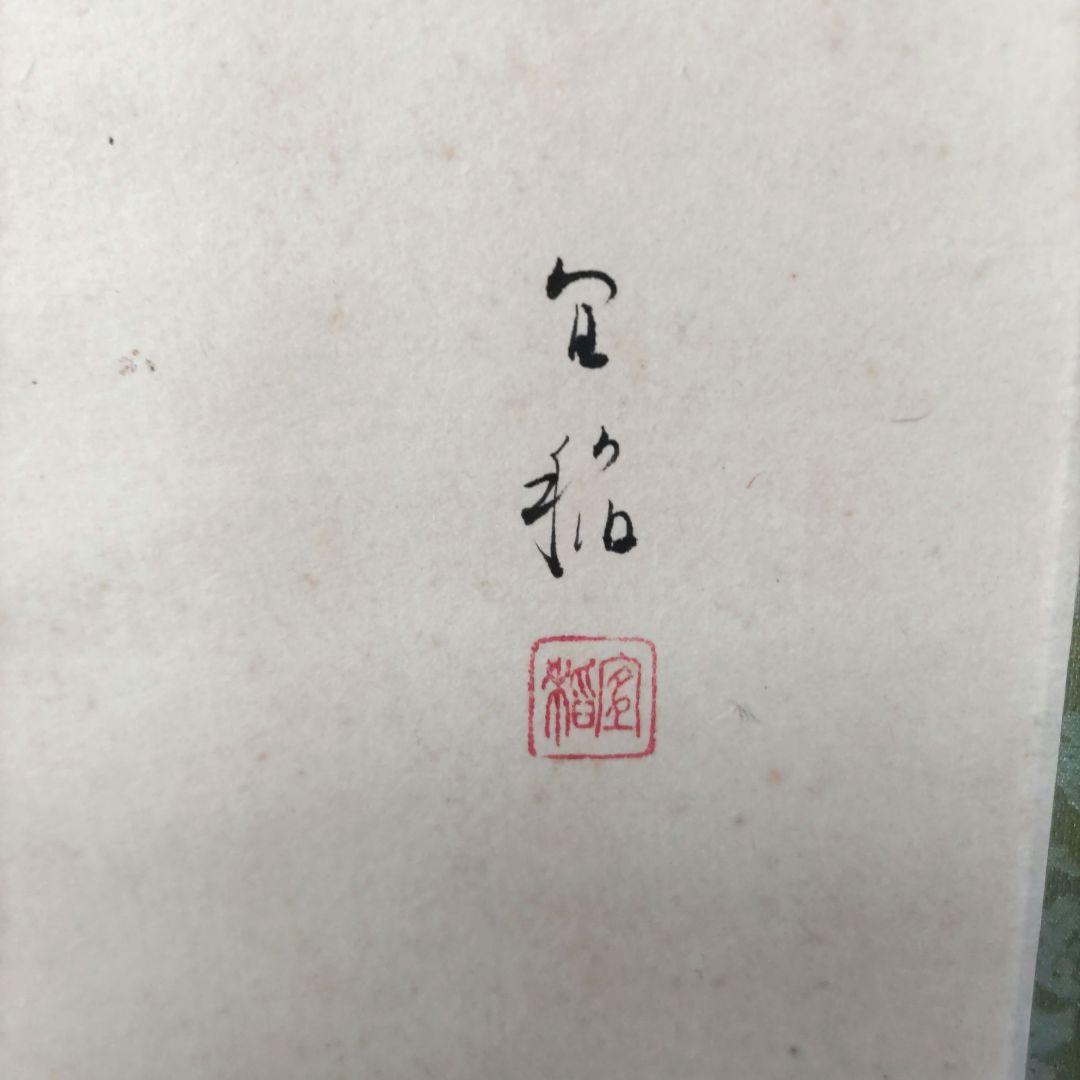 宜稲
宜稲